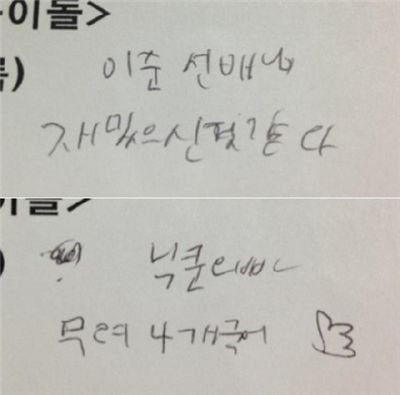 이돌>
) 이준 선배님
재밌으신것같다
이돌>
) 닉쿤오빠
무려 4개국어